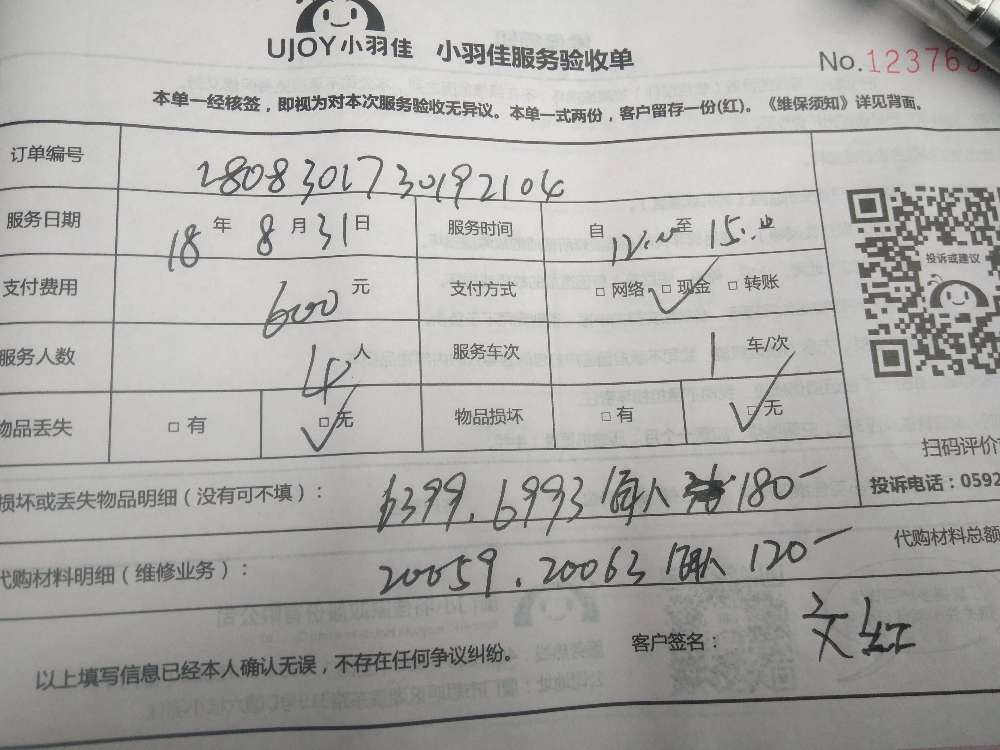 UJOY小羽佳 小羽佳服务验收单
No.123763
本单一经核签，即视为对本次服务验收无异议。本单一式两份，客户留存一份(红)。《维保须知》详见背面。
订单编号 2808301730192104
服务日期 18年8月31日 服务时间 自12:00至15:00
支付费用 600元 支付方式 □网络 □现金 □转账
服务人数 4人 服务车次 1车/次
物品丢失 □有 □无 物品损坏 □有 □无
投诉或建议
扫码评价
投诉电话：0592
损坏或丢失物品明细（没有可不填）： 6399.6993 每人 180-
代购材料明细（维修业务）： 20059.20063 每人 120-
代购材料总额
以上填写信息已经本人确认无误，不存在任何争议纠纷。
客户签名： 文红